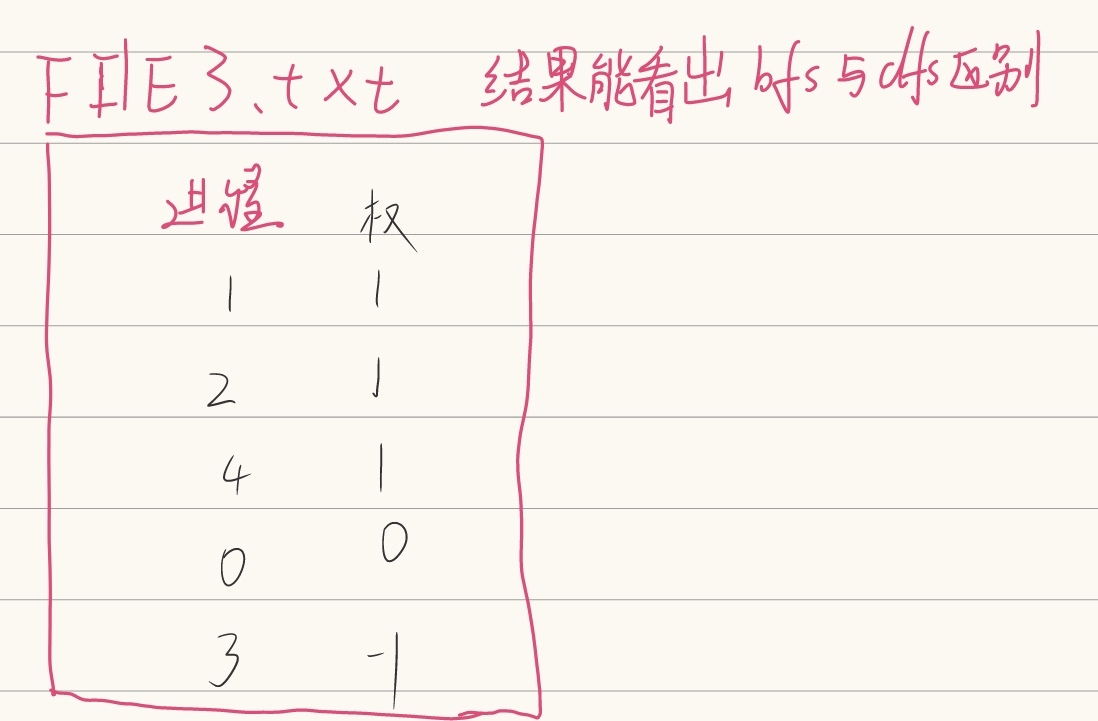 FILE3.txt 结果能看出 bfs与dfs区别
进程 权
1 1
2 1
4 1
0 0
3 -1